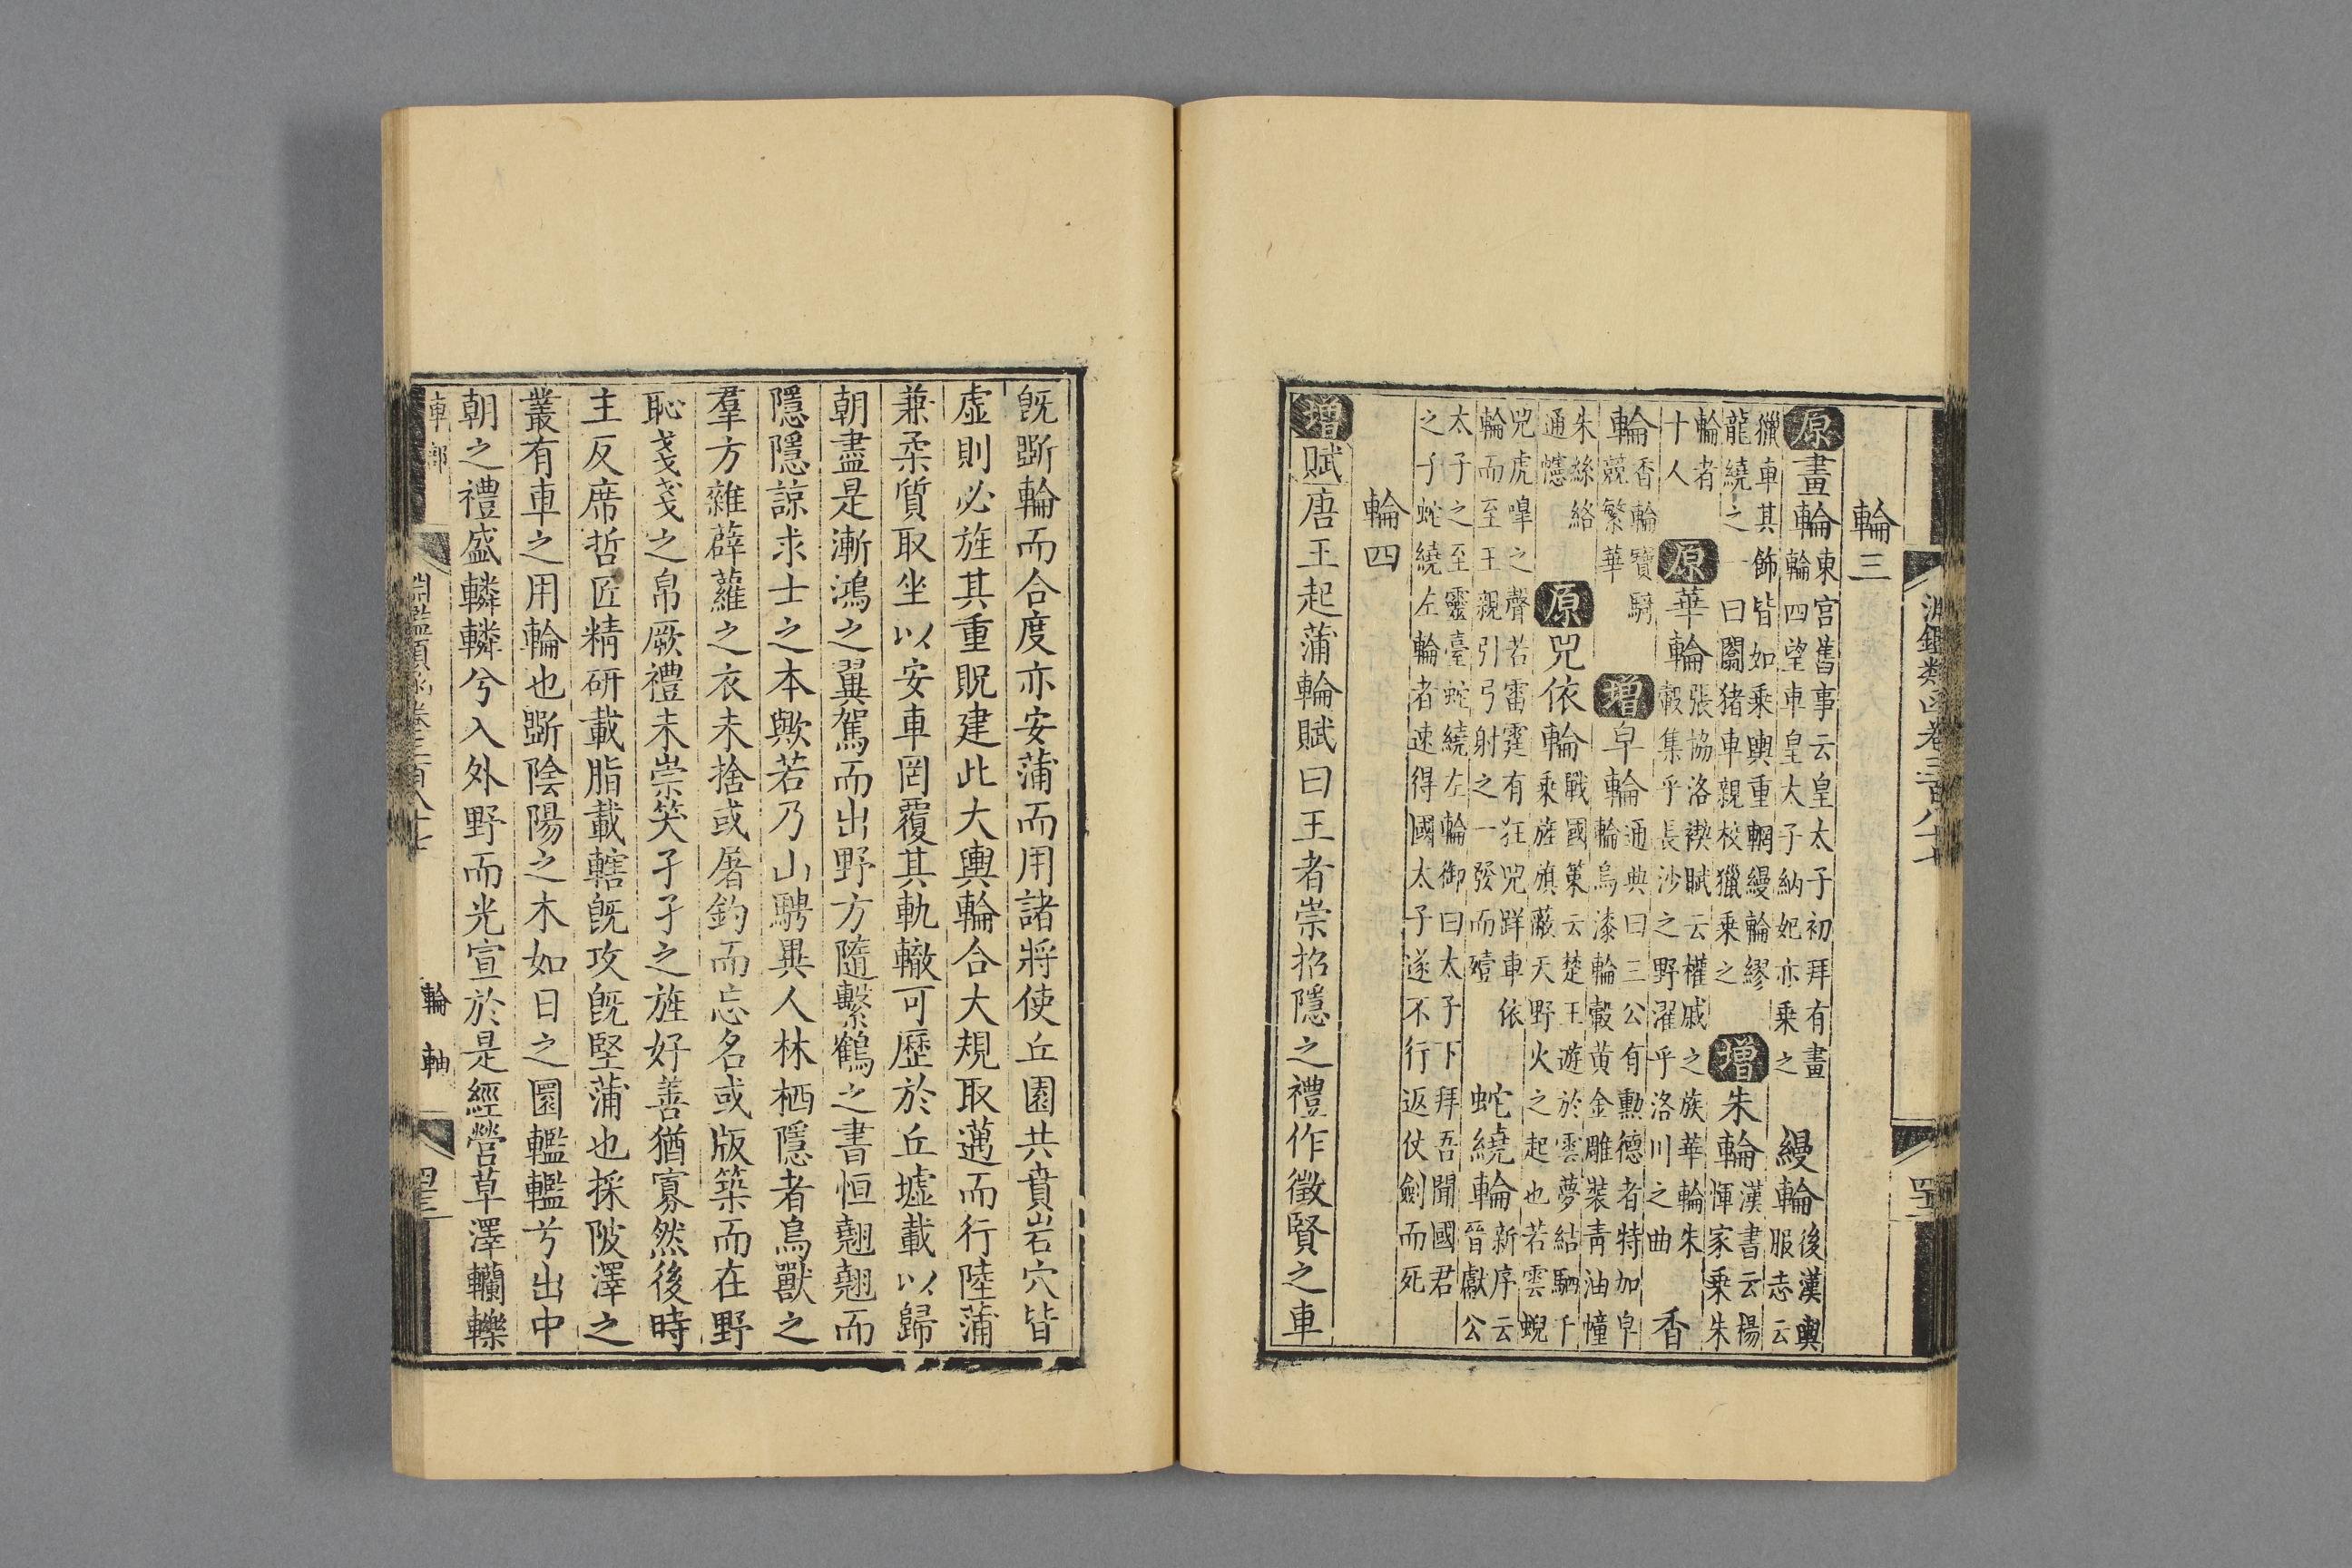 淵鑑類函卷三百八十七
輪三
原畫輪東宮舊事云皇太子初拜有畫輪四望車皇太子納妃亦乘之 縵輪後漢輿服志云
獵車其飾皆如乘輿重輞縵輪繆龍繞之一曰闟猪車親校獵乘之 增朱輪漢書云楊惲家乘朱
輪者十人 原華輪張協洛禊賦云權戚之族華輪朱轂集乎長沙之野濯乎洛川之曲 香
輪香輪寶騎競繁華 增皁輪通典曰三公有勳德者特加皁輪烏漆輪轂黃金雕裝青油幢
朱絲絡通幰 原兕依輪戰國策云楚王遊於雲夢結駟千乘旌旗蔽天野火之起也若雲蜺
兕虎嘷之聲若雷霆有狂兕車依輪而至王親引弓射之一發而殪 蛇繞輪新序云晉獻公
太子之至靈臺蛇繞左輪御曰太子下拜吾聞國君之子蛇繞左輪者速得國太子遂不行返仗劍而死
輪四
增賦唐王起蒲輪賦曰王者崇招隱之禮作徵賢之車
旣斲輪而合度亦安蒲而用諸將使丘園共賁岩穴皆
虛則必旌其重貺建此大輿輪合大規取邁而行陸蒲
兼柔質取坐以安車罔覆其軌轍可歷於丘墟載以歸
朝盡是漸鴻之翼駕而出野方隨繫鶴之書恒翹翹而
隱隱諒求士之本歟若乃山騁異人林栖隱者烏獸之
羣方雜薜蘿之衣未捨或屠釣而忘名或版築而在野
恥戔戔之帛厥禮未崇笑孑孑之旌好善猶寡然後時
主反席哲匠精研載脂載轄旣攻旣堅蒲也採陂澤之
叢有車之用輪也斲陰陽之木如日之圓轞轞兮出中
朝之禮盛轔轔兮入外野而光宣於是經營草澤轥轢
車部
淵鑑類函卷三百八十七
輪 軸